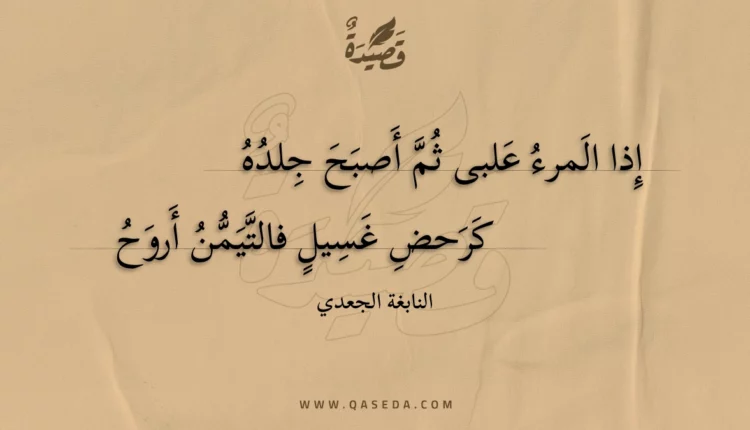 قَصِيدَةٌ
إِذا المَرءُ عَلبى ثُمَّ أَصبَحَ جِلدُهُ
كَرَحضِ غَسِيلٍ فالتَّيَمُّنُ أَروَحُ
النابغة الجعدي
WWW.QASEDA.COM